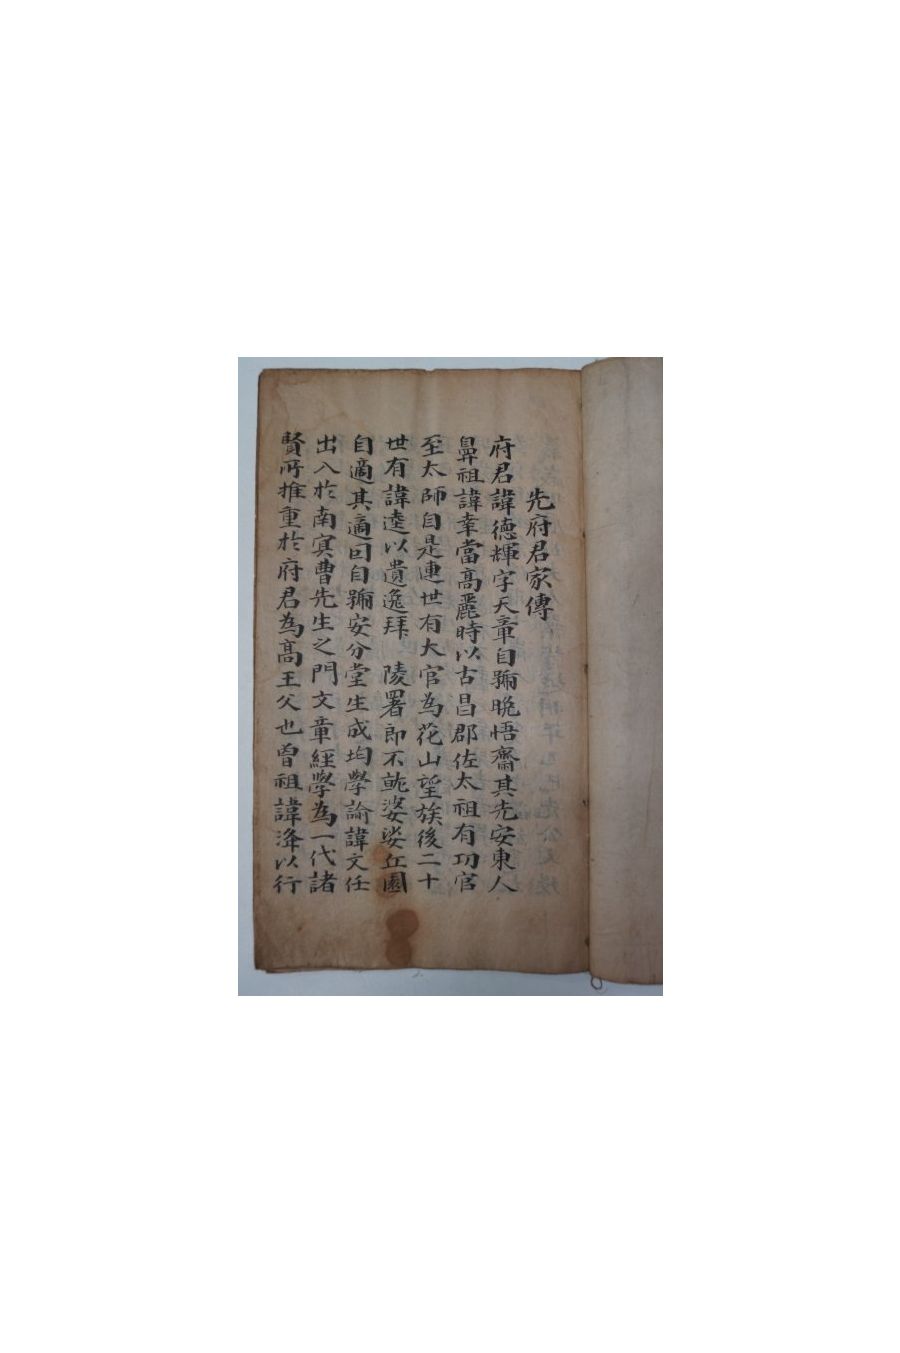 先府君家傳
府君諱德輝字天章自號晩悟齋其先安東人
鼻祖諱幸當高麗時以古昌郡佐太祖有功官
至太師自是連世有大官為花山望族後二十
世有諱逵以遺逸拜 陵署郎不就婆娑丘園
自適其適回自號安分堂生成均學諭諱文任
出入於南冥曹先生之門文章經學為一代諸
賢所推重於府君為高王父也曾祖諱洚以行